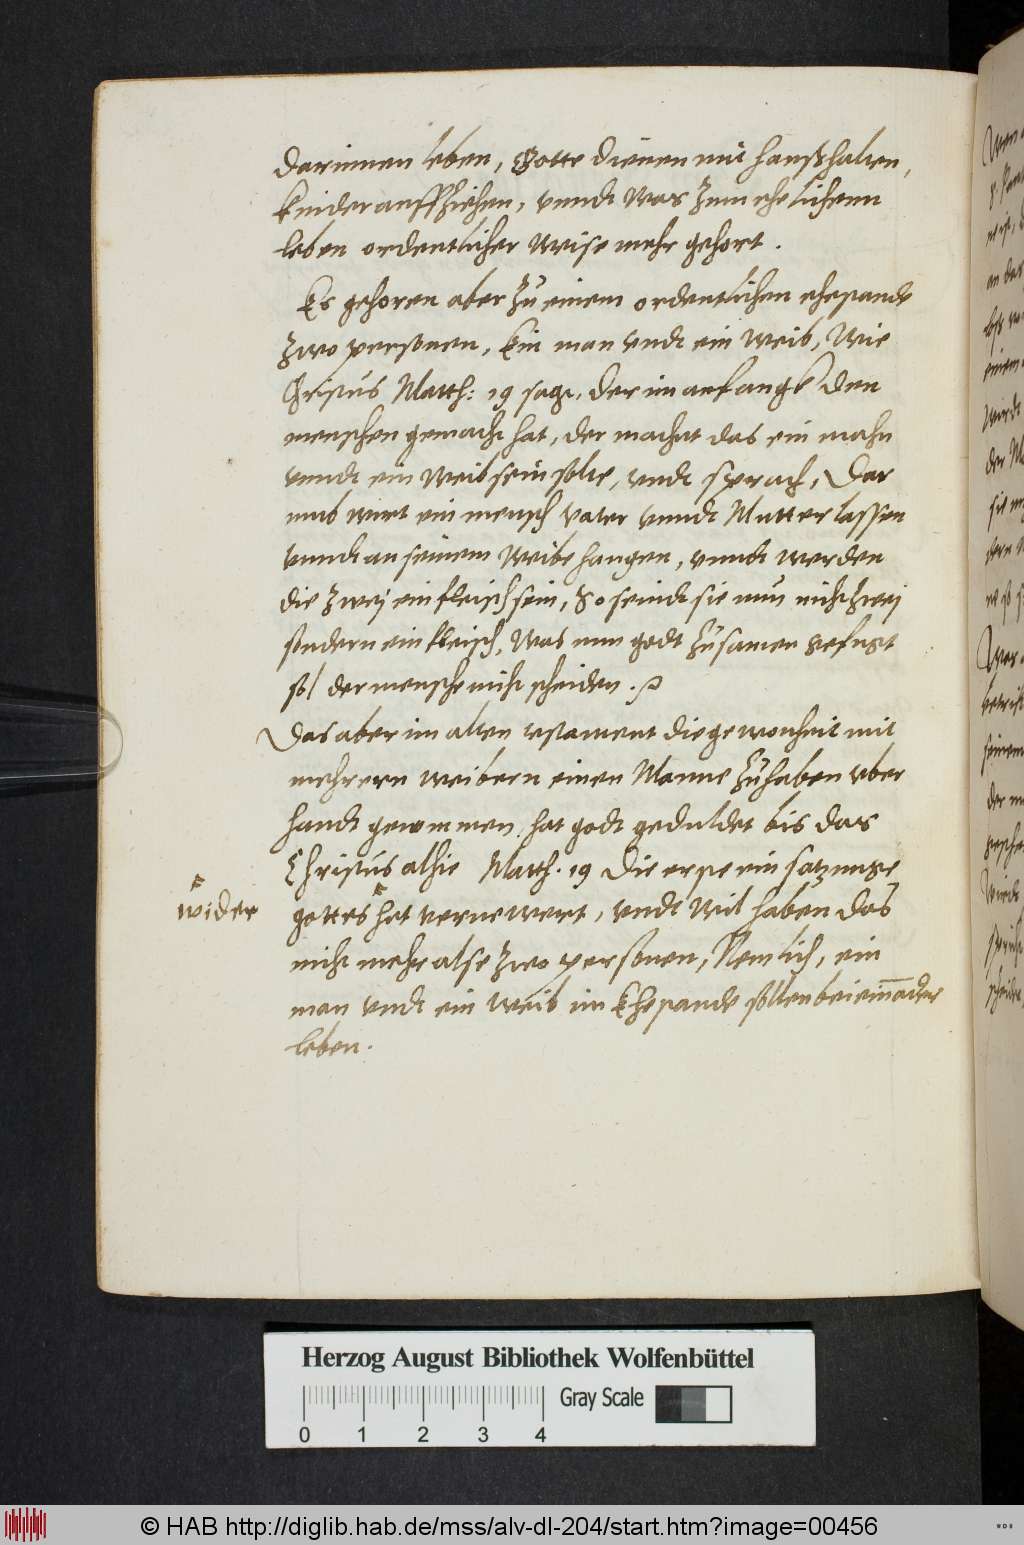 darinnen leben, Gotte dienen mit haußhalten,
kinder auffziehen, vnndt was zum ehelichenn
leben ordentlicher weise mehr gehort.
Es gehoren aber zu einem ordentlichen ehestande
zwo personen, Ein man vndt ein weib, Wie
Christus Matth: 19 sagt, der im anfangk den
menschen gemacht hat, der machet das ein mahn
vnndt ein weib sein solte, vndt sprach, Dar
umb wirt ein mensch vater vnndt Mutter lassen
vnndt an seinem weibe hangen, vnndt werden
die zwej ein fleisch sein, So seindt sie nun nicht zwej
sondern ein fleisch, Was nun godt zusamen gefugt
sol der mensche nicht scheiden.
Das aber im alten testament die gewonheit mit
mehrern weibern einen Manne zuhaben vber
handt gewunnen, hat godt geduldet bis das
Christus alhie Matth. 19 die erste einsatzunge
wider
gottes hat vernewert, vndt wil haben das
nicht mehr alse zwo personen, Nemlich, ein
man vndt ein weib im Ehestande sollen bei einnader
leben.
Herzog August Bibliothek Wolfenbüttel
Gray Scale
0 1 2 3 4
© HAB http://diglib.hab.de/mss/alv-dl-204/start.htm?image=00456